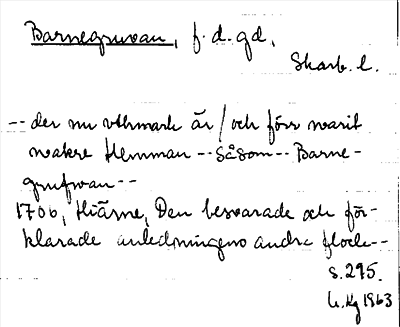 Barnegruvan, f.d. gd,
Skarb. l.
-- der nu vthmark är / och förr warit
wakre Hemman -- Såsom -- Barne-
grufwan --
1706, Hiärne, Den besvarade och för-
klarade anledningens andra flock --
s. 295.
U. Kg 1963